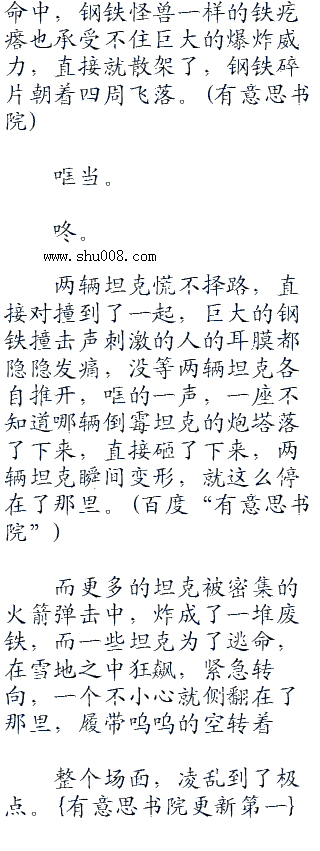 命中，钢铁怪兽一样的铁疙
瘩也承受不住巨大的爆炸威
力，直接就散架了，钢铁碎
片朝着四周飞落。(有意思书
院)
哐当。
咚。
www.shu008.com
两辆坦克慌不择路，直
接对撞到了一起，巨大的钢
铁撞击声刺激的人的耳膜都
隐隐发痛，没等两辆坦克各
自推开，哐的一声，一座不
知道哪辆倒霉坦克的炮塔落
了下来，直接砸了下来，两
辆坦克瞬间变形，就这么停
在了那里。(百度“有意思书
院”)
而更多的坦克被密集的
火箭弹击中，炸成了一堆废
铁，而一些坦克为了逃命，
在雪地之中狂飙，紧急转
向，一个不小心就侧翻在了
那里，履带呜呜的空转着
整个场面，凌乱到了极
点。{有意思书院更新第一}